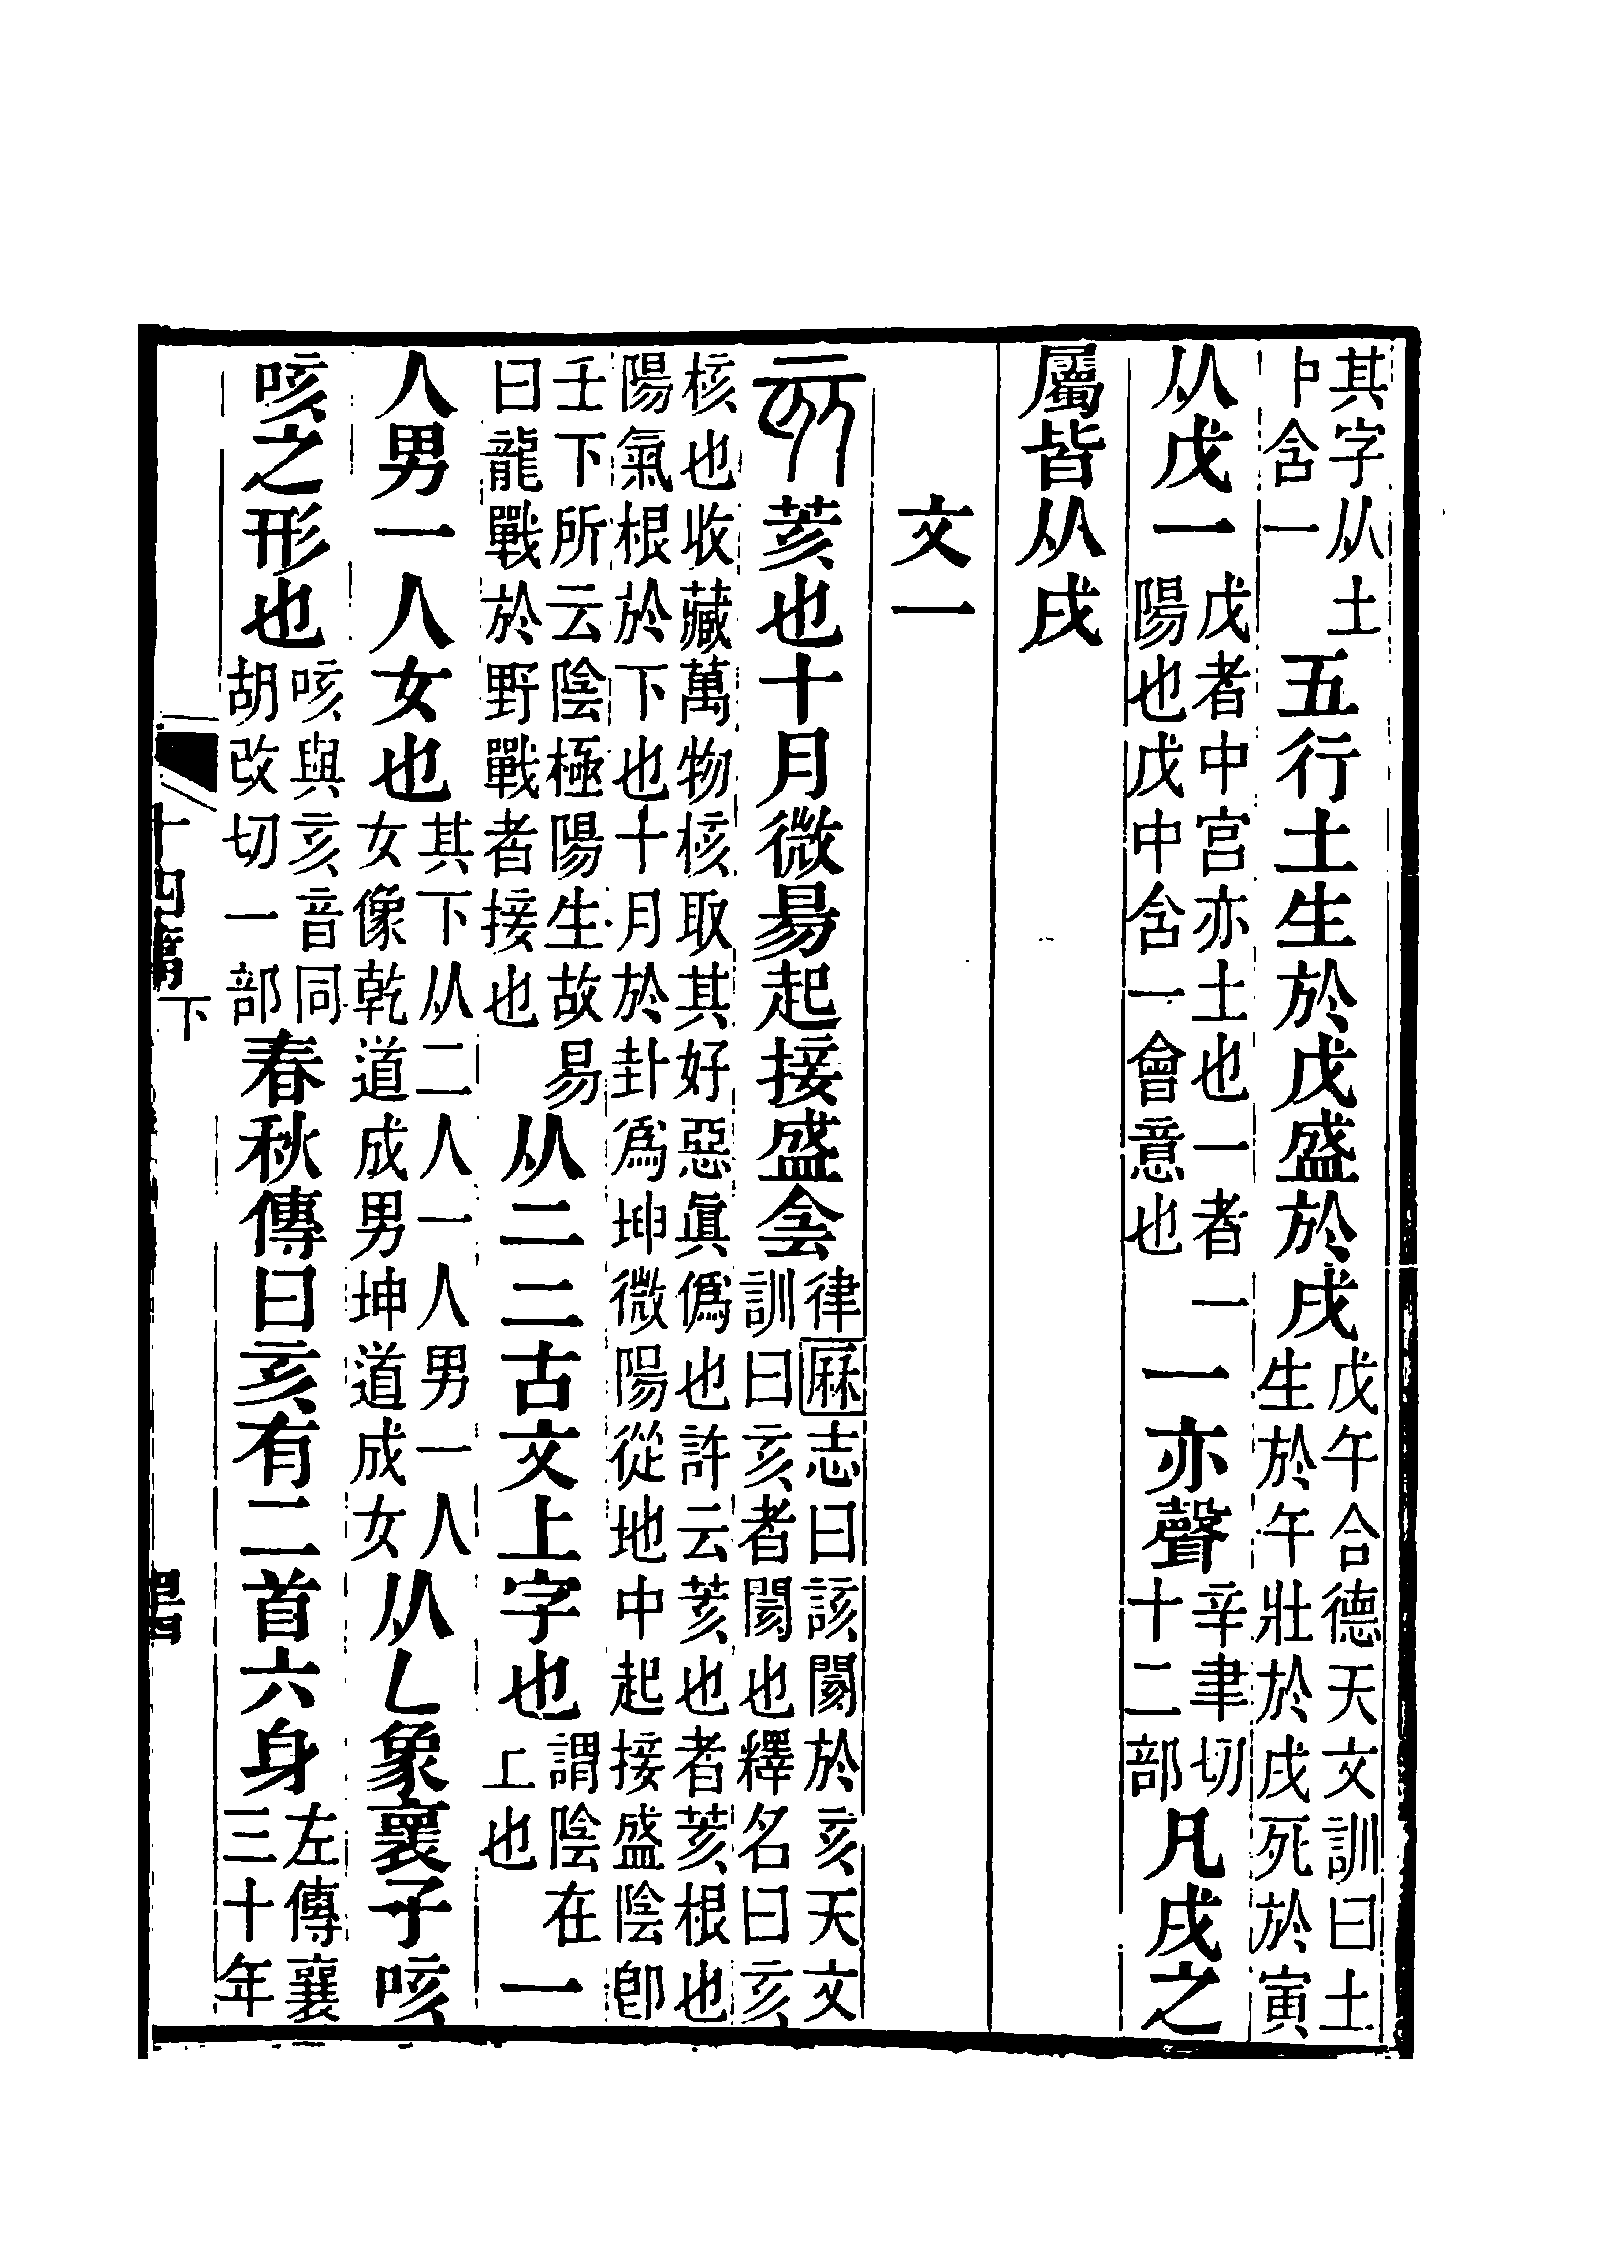 其字从土中含一五行土生於戊盛於戌戊午合德天文訓曰土生於午壯於戌死於寅
从戊一戊者中宮亦土也一者一陽也戊中含一會意也一亦聲辛聿切十二部凡戌之
屬皆从戌
文一
亥荄也十月微昜起接盛侌律厤志曰該閡於亥天文訓曰亥者閡也釋名曰亥
核也收藏萬物核取其好惡眞僞也許云荄也者荄根也陽氣根於下也十月於卦爲坤微陽從地中起接盛陰卽
壬下所云陰極陽生故易曰龍戰於野戰者接也从二二古文上字也謂陰在丄也一
人男一人女也其下从二人一人男一人女像乾道成男坤道成女从乚象褱子咳
咳之形也咳與亥音同胡改切一部春秋傳曰亥有二首六身左傳襄三十年
十四篇下